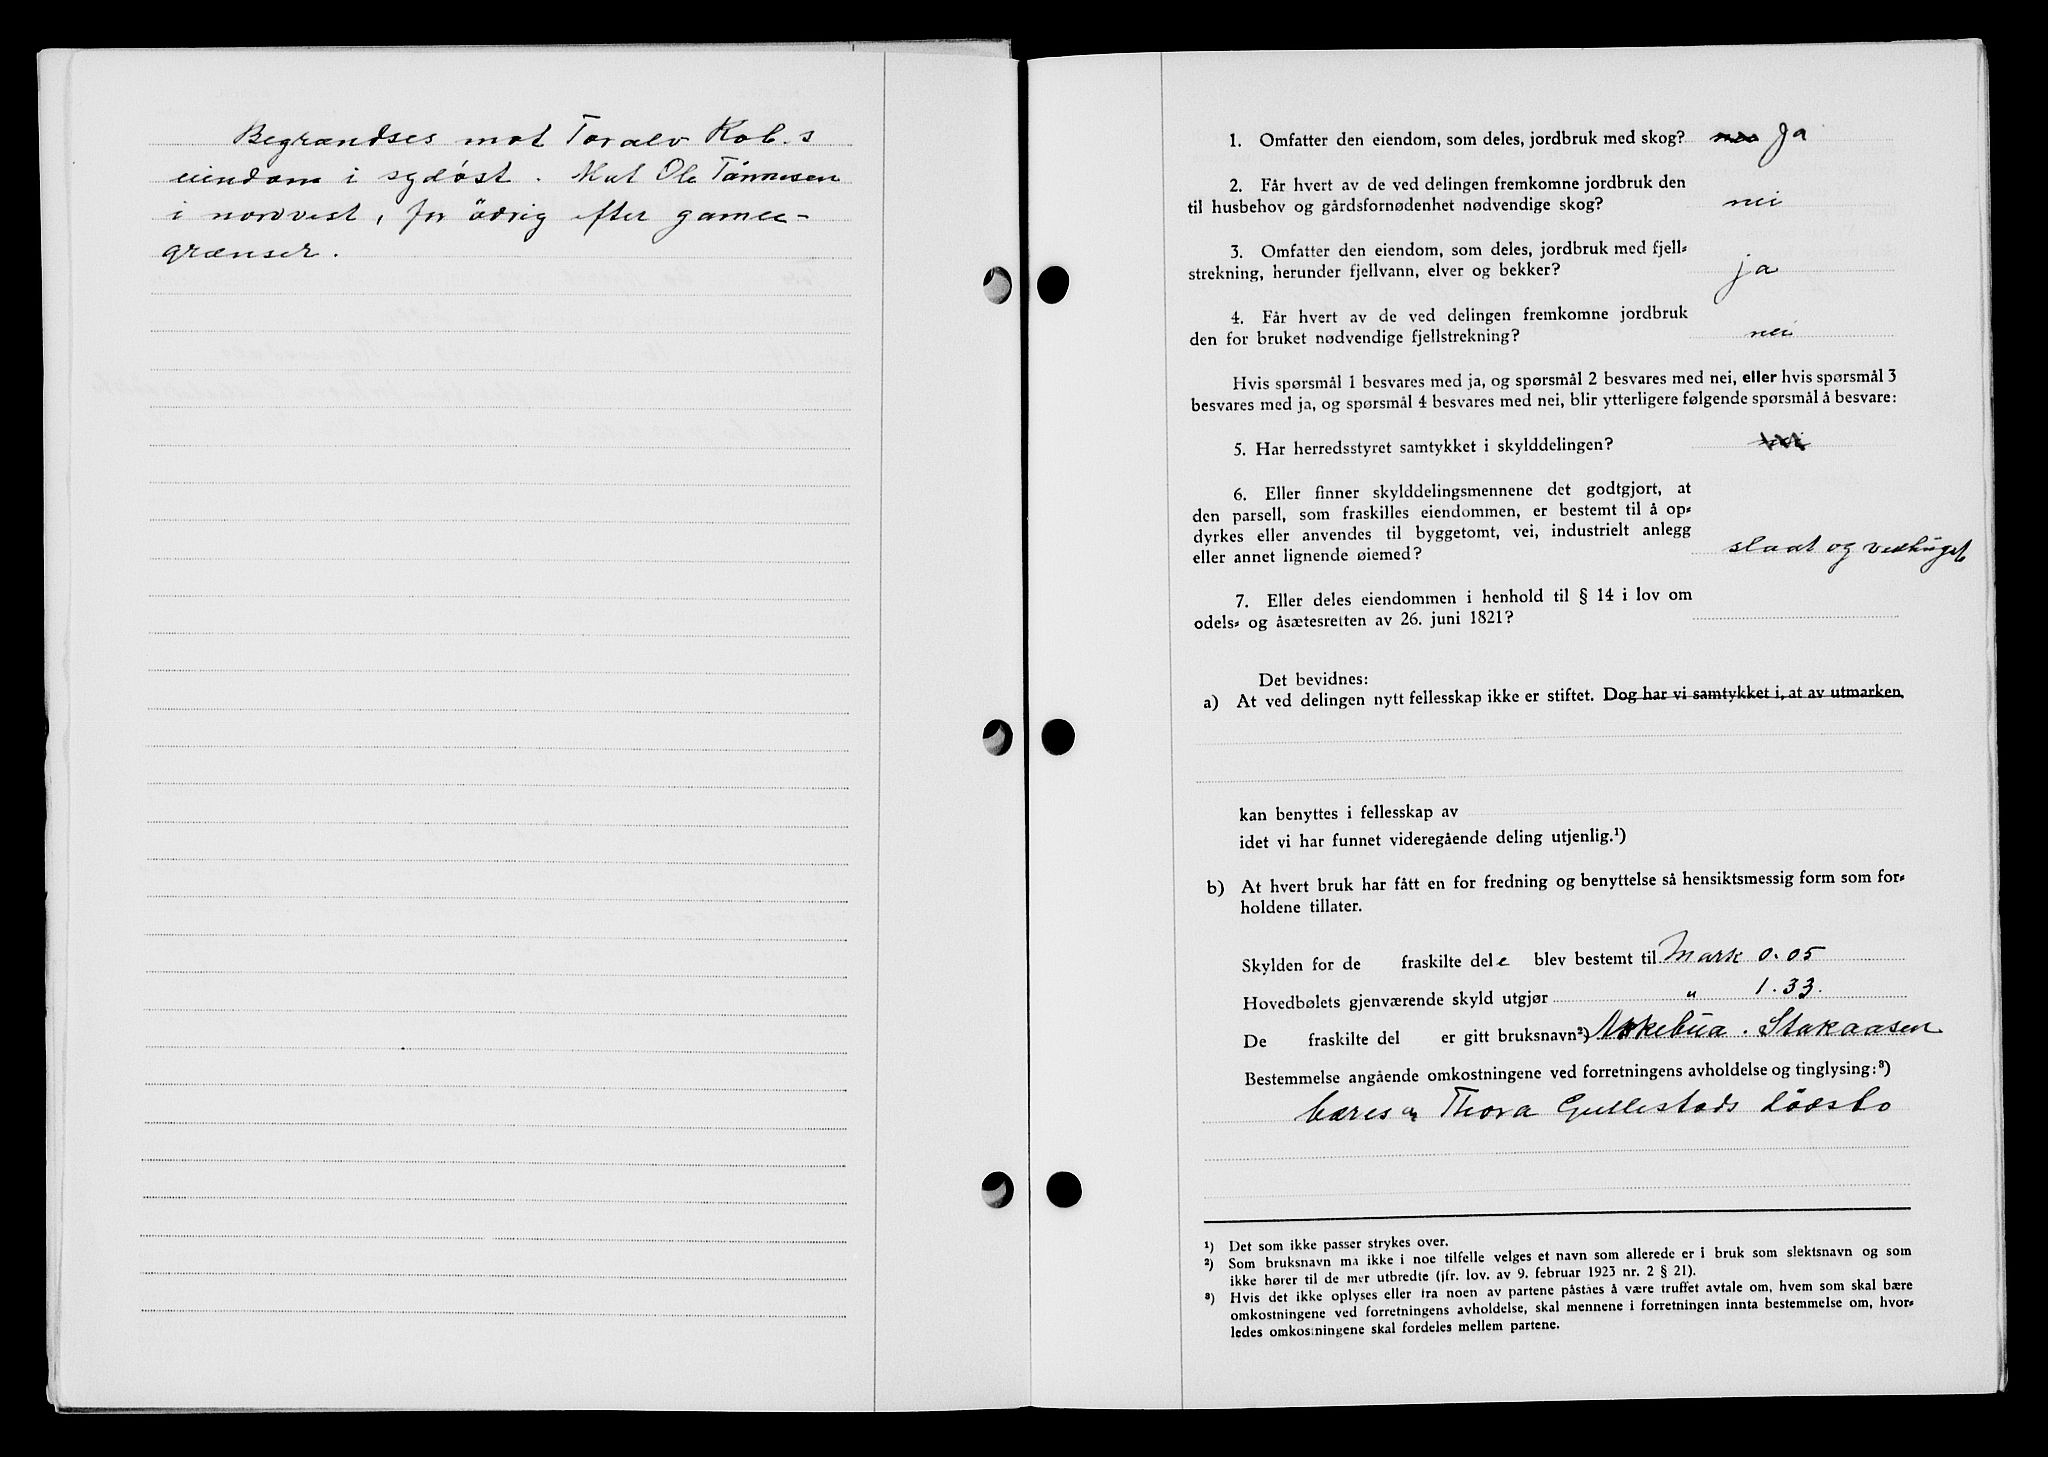 Begrændses mot Toralv Rob.s
eiendom i sydöst. Mot Ole Tönnesen
i nordvest, for övrig efter gamle-
grænser.
1. Omfatter den eiendom, som deles, jordbruk med skog? nei Ja
2. Får hvert av de ved delingen fremkomne jordbruk den
til husbehov og gårdsfornødenhet nødvendige skog? nei
3. Omfatter den eiendom, som deles, jordbruk med fjell-
strekning, herunder fjellvann, elver og bekker? ja
4. Får hvert av de ved delingen fremkomne jordbruk
den for bruket nødvendige fjellstrekning? nei
Hvis spørsmål 1 besvares med ja, og spørsmål 2 besvares med nei, eller hvis spørsmål 3
besvares med ja, og spørsmål 4 besvares med nei, blir ytterligere følgende spørsmål å besvare:
5. Har herredsstyret samtykket i skylddelingen?
6. Eller finner skylddelingsmennene det godtgjort, at
den parsell, som fraskilles eiendommen, er bestemt til å op-
dyrkes eller anvendes til byggetomt, vei, industrielt anlegg
eller annet lignende øiemed? slaat og vedhugst
7. Eller deles eiendommen i henhold til § 14 i lov om
odels- og åsætesretten av 26. juni 1821?
Det bevidnes:
a) At ved delingen nytt fellesskap ikke er stiftet. Dog har vi samtykket i, at av utmarken
kan benyttes i fellesskap av
idet vi har funnet videregående deling utjenlig.¹)
b) At hvert bruk har fått en for fredning og benyttelse så hensiktsmessig form som for-
holdene tillater.
Skylden for de fraskilte dele blev bestemt til Mark 0.05
Hovedbølets gjenværende skyld utgjør " 1.33.
De fraskilte del er gitt bruksnavn²) Askebua. Stakaasen
Bestemmelse angående omkostningene ved forretningens avholdelse og tinglysing:³)
bæres av Thora Gullestads dödsbo
¹) Det som ikke passer strykes over.
²) Som bruksnavn må ikke i noe tilfelle velges et navn som allerede er i bruk som slektsnavn og som
ikke hører til de mer utbredte (jfr. lov. av 9. februar 1923 nr. 2 § 21).
³) Hvis det ikke oplyses eller fra noen av partene påståes å være truffet avtale om, hvem som skal bære
omkostningene ved forretningens avholdelse, skal mennene i forretningen innta bestemmelse om, hvor-
ledes omkostningene skal fordeles mellem partene.